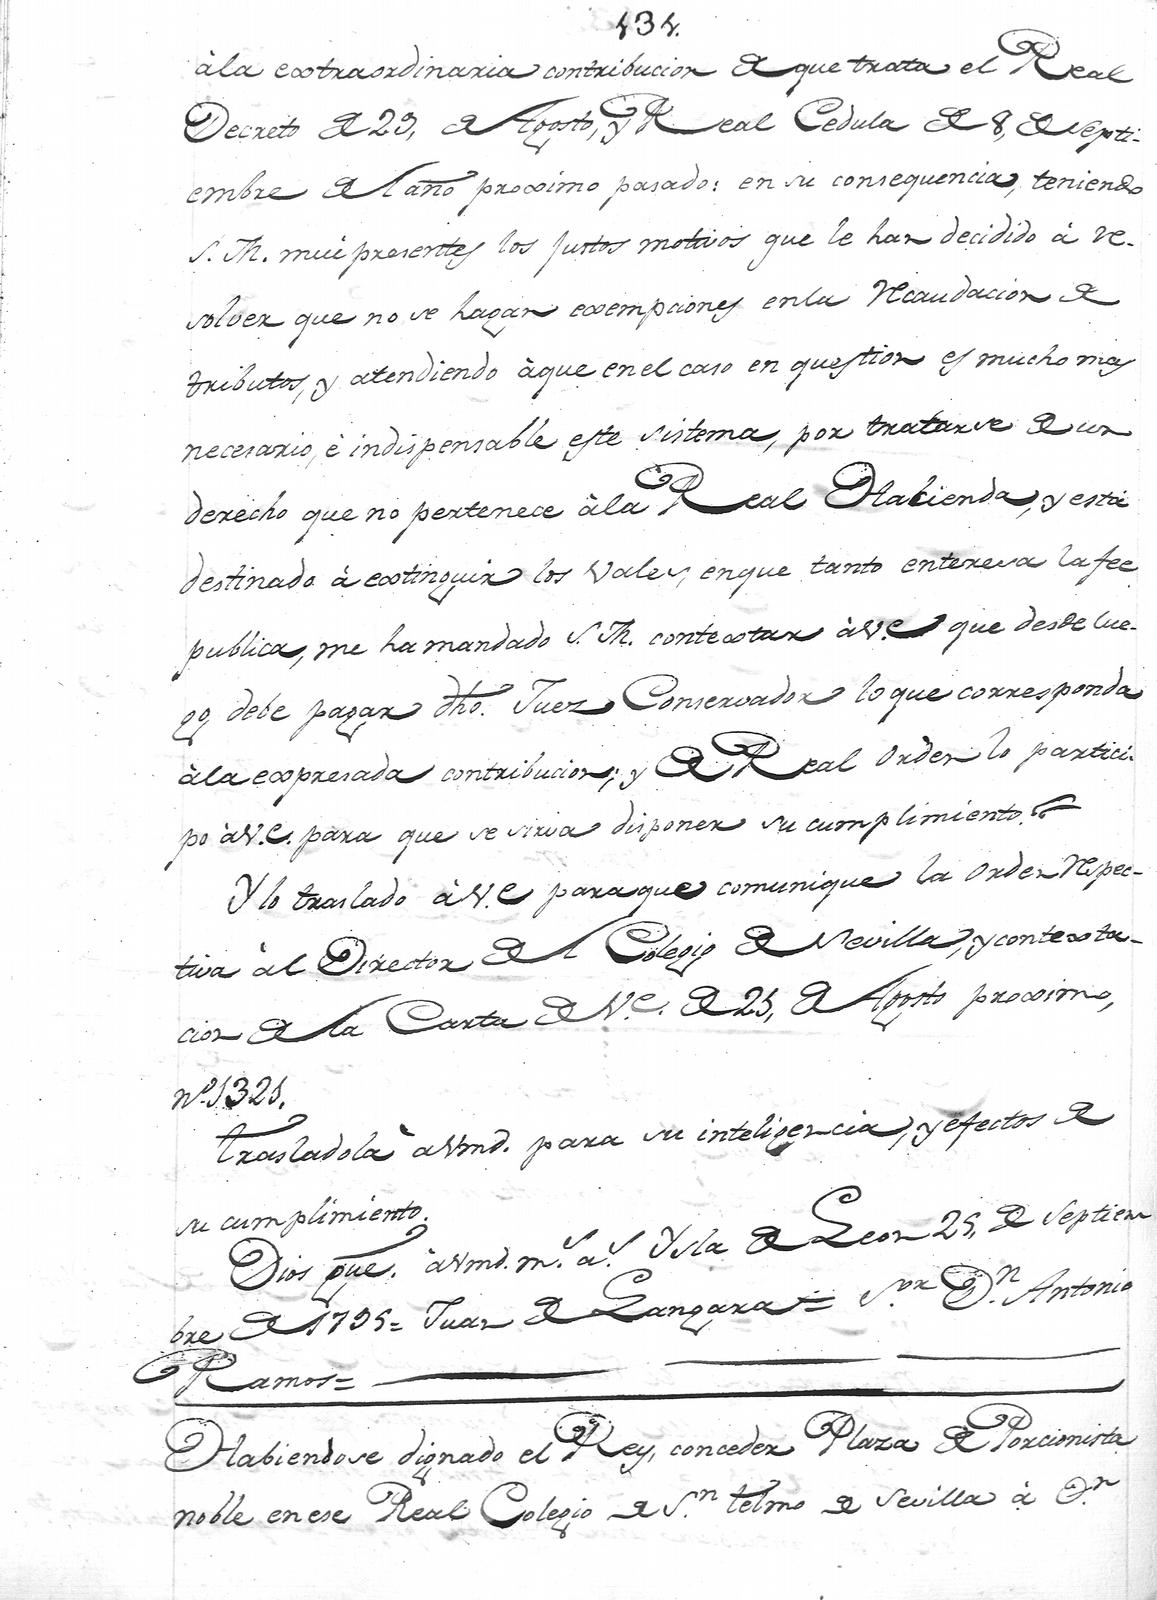 434.
àla extraordinaria contribucion de que trata el Real
Decreto de 29, de Agosto, y Real Cedula de 8, de Septi-
embre del año proximo pasado: en su consequencia, teniendo
S. M. mui presentes los justos motivos que le han decidido à re-
solver que no se hagan exempciones enla Recaudacion de
tributos, y atendiendo àque en el caso en question es mucho mas
necesario, è indispensable este sistema, por tratarse de un
derecho que no pertenece àla Real Hacienda, y està
destinado à extinguir los Vales, enque tanto enteresa la fee
publica, me ha mandado S. M. contextar àV.e que desde lue-
go debe pagar dho. Juez Conservador lo que corresponda
àla expresada contribucion; y de Real orden lo partici-
po àV.e. para que se sirva disponer su cumplimiento.
Y lo traslado àV.e paraque comunique la orden respec-
tiva àl Director del Colegio de Sevilla, y contexta-
cion de la Carta de V.e. de 25, de Agosto proximo,
nº. 1321.
Trasladola à aVmd. para su inteligencia, y efectos de
su cumplimiento.
Dios gue. àVmd. m.s a.s Ysla de Leon 25, de Septiem
bre de 1795= Juan de Langara= S.or D.n Antonio
Ramos=
Habiendose dignado el Rey, conceder Plaza de Porcionista
noble en ese Real Colegio de S.n telmo de Sevilla à D.n